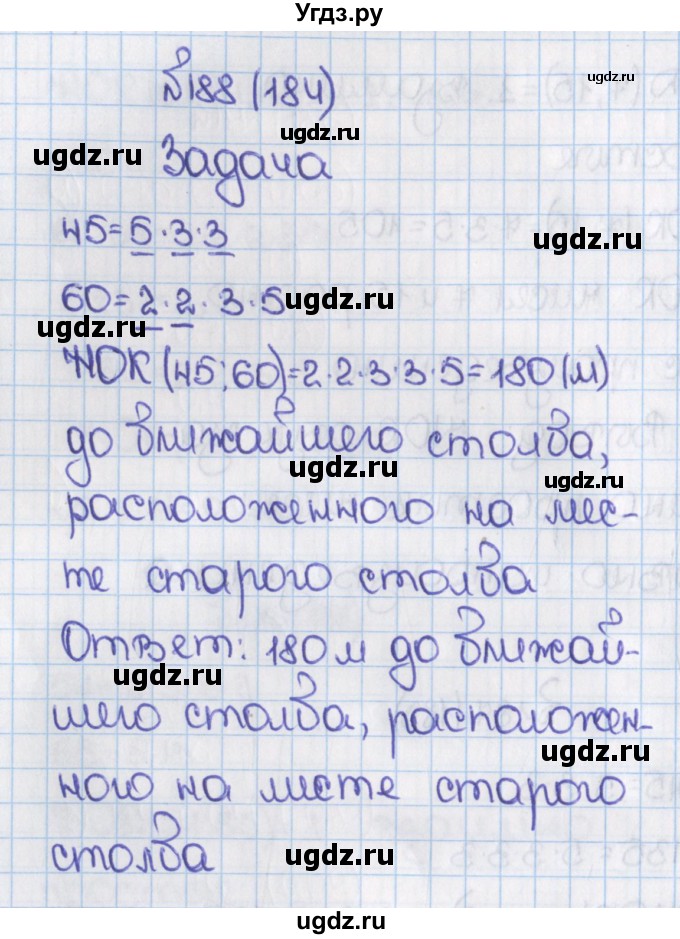 Угдз.ру
№188 (184)
ugdz.ru
ugdz.ru
ugdz.ru
Задача
45=5·3·3
ugdz.ru
60=2·2·3·5
ugdz.ru
ugdz.ru
НОК (45;60)=2·2·3·3·5=180(м)
до ближайшего столба,
ugdz.ru
ugdz.ru
расположенного на мес-
те старого столба
ugdz.ru
Ответ: 180 м до ближай-
ugdz.ru
шего столба, расположен-
ugdz.ru
ного на месте старого
столба
ugdz.ru
ugdz.ru
ugdz.ru